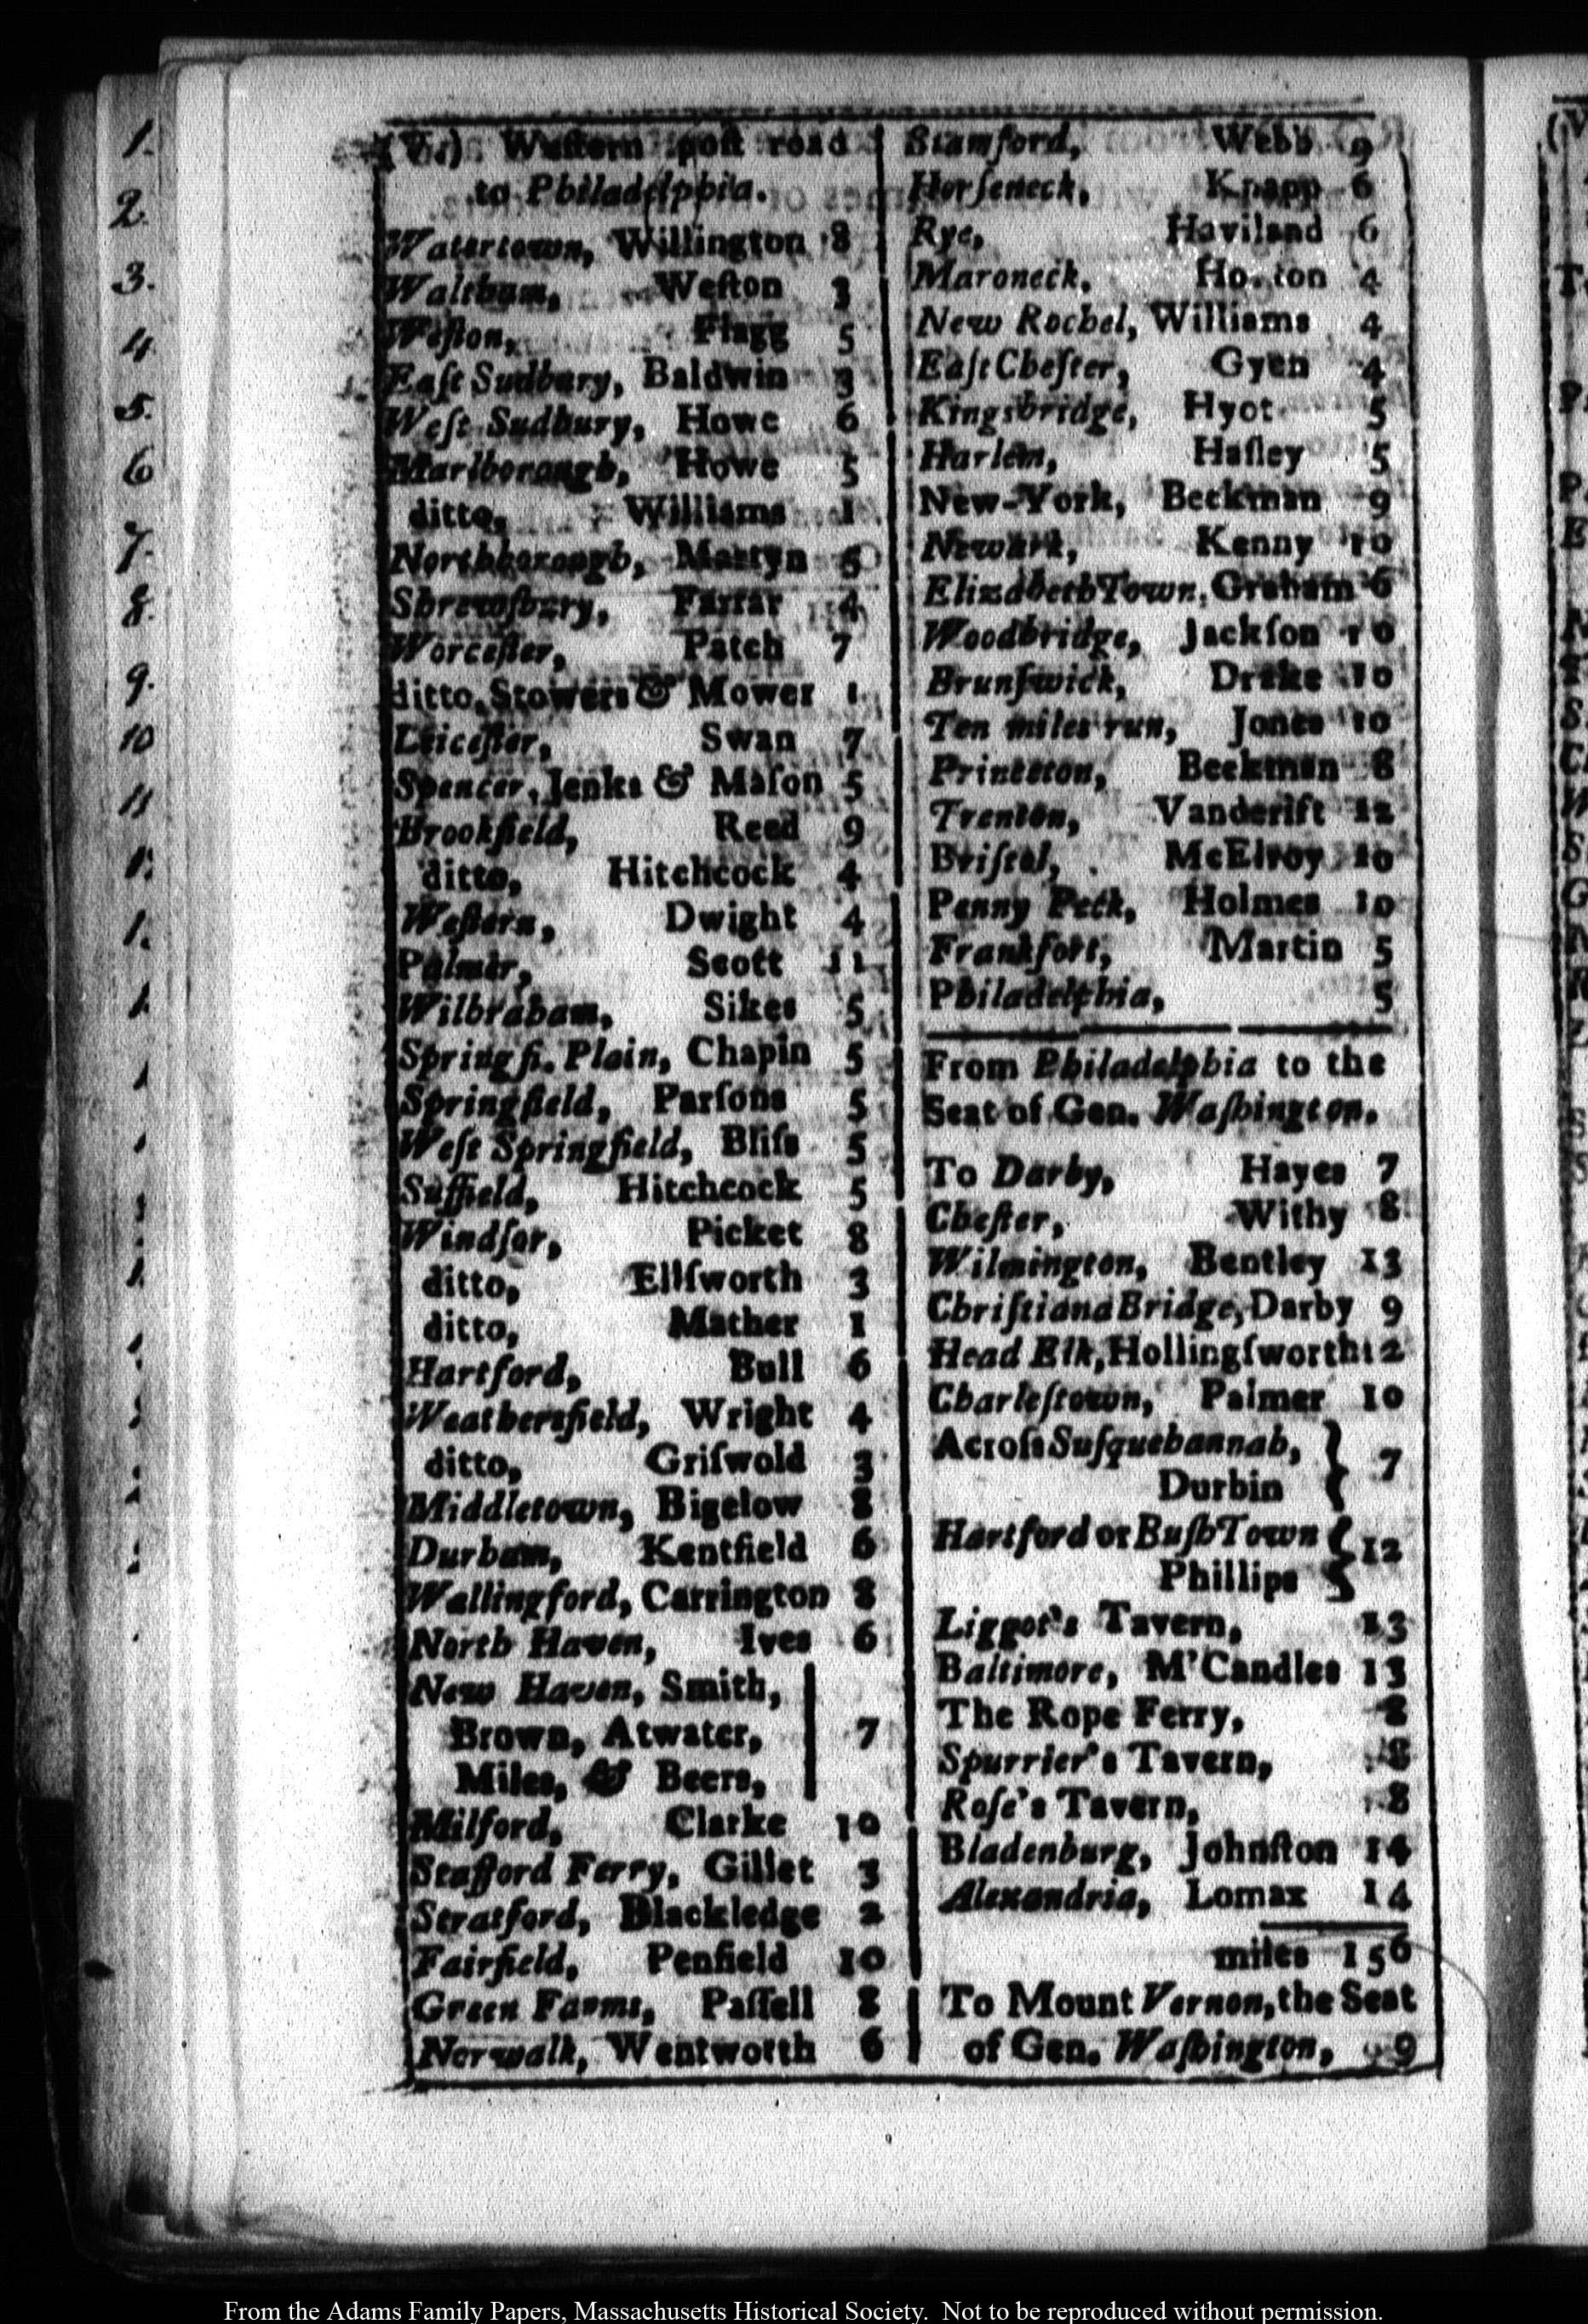 1.
2.
3.
4.
5.
6
7.
8.
9.
10
11
(V.) Weſtern poſt road
to Philadelphia.
Watertown, Willington 8
Waltham, Weſton 3
Weſton, Flagg 5
Eaſt Sudbury, Baldwin 3
Weſt Sudbury, Howe 6
Marlborough, Howe 5
ditto, Williams 1
Northborough, Martyn 5
Shrewſbury, Farrar 4
Worceſter, Patch 7
ditto, Stowers & Mower 1
Leiceſter, Swan 7
Spencer, Jenks & Maſon 5
Brookfield, Reed 9
ditto, Hitchcock 4
Weſtern, Dwight 4
Palmer, Scott 11
Wilbraham, Sikes 5
Springfi. Plain, Chapin 5
Springfield, Parſons 5
Weſt Springfield, Bliſs 5
Suffield, Hitchcock 5
Windſor, Picket 8
ditto, Ellſworth 3
ditto, Mather 1
Hartford, Bull 6
Weathersfield, Wright 4
ditto, Griſwold 3
Middletown, Bigelow 8
Durham, Kentfield 6
Wallingford, Carrington 8
North Haven, Ives 6
New Haven, Smith,
Brown, Atwater, 7
Miles, & Beers,
Milford, Clarke 10
Stafford Ferry, Gillet 3
Stratford, Blackledge 2
Fairfield, Penfield 10
Green Farms, Paſſell 8
Norwalk, Wentworth 6
Stamford, Webb 9
Horſeneck, Knapp 6
Rye, Haviland 6
Maroneck, Horton 4
New Rochel, Williams 4
Eaſt Cheſter, Gyen 4
Kingsbridge, Hyot 5
Harlem, Haſley 5
New-York, Beekman 9
Newark, Kenny 10
Elizabeth Town, Graham 6
Woodbridge, Jackſon 10
Brunſwick, Drake 10
Ten miles run, Jones 10
Princeton, Beekman 8
Trenton, Vanderift 12
Briſtol, McElroy 10
Penny Peck, Holmes 10
Frankfort, Martin 5
Philadelphia, 5
From Philadelphia to the
Seat of Gen. Waſhington.
To Darby, Hayes 7
Cheſter, Withy 8
Wilmington, Bentley 13
Chriſtiana Bridge, Darby 9
Head Elk, Hollingſworth 12
Charleſtown, Palmer 10
Acroſs Suſquehannah, } 7
Durbin
Hartford or Buſh Town } 12
Phillips
Liggot's Tavern, 13
Baltimore, M'Candles 13
The Rope Ferry, 8
Spurrier's Tavern, 8
Roſe's Tavern, 8
Bladenburg, Johnſton 14
Alexandria, Lomax 14
miles 156
To Mount Vernon, the Seat
of Gen. Waſhington, 9
From the Adams Family Papers, Massachusetts Historical Society. Not to be reproduced without permission.